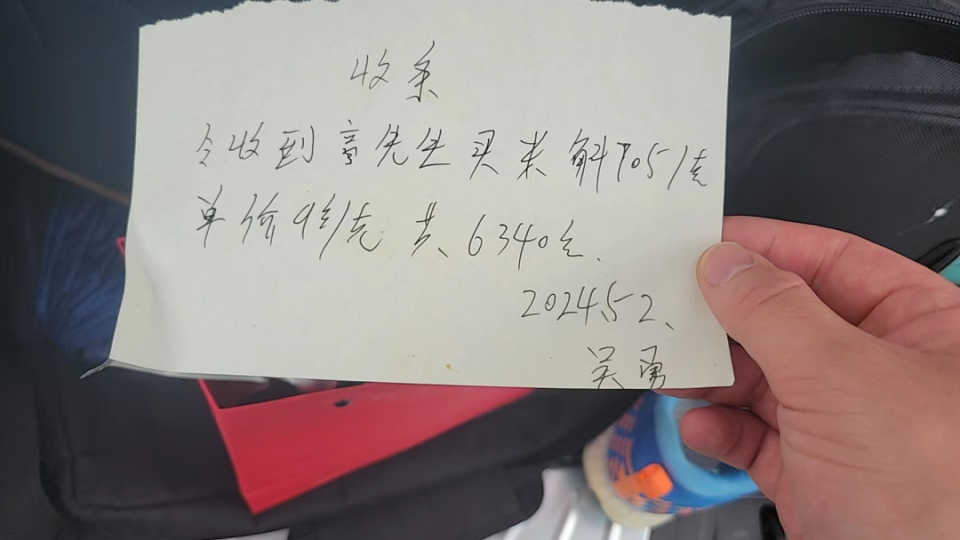 收条
今收到高先生买米斛705/克
单价9多/克 共、6340元.
2024、5 2、
吴勇